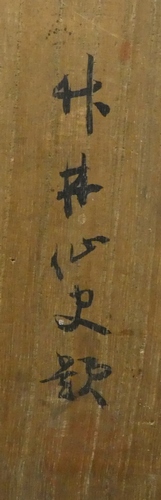 竹林仙史題